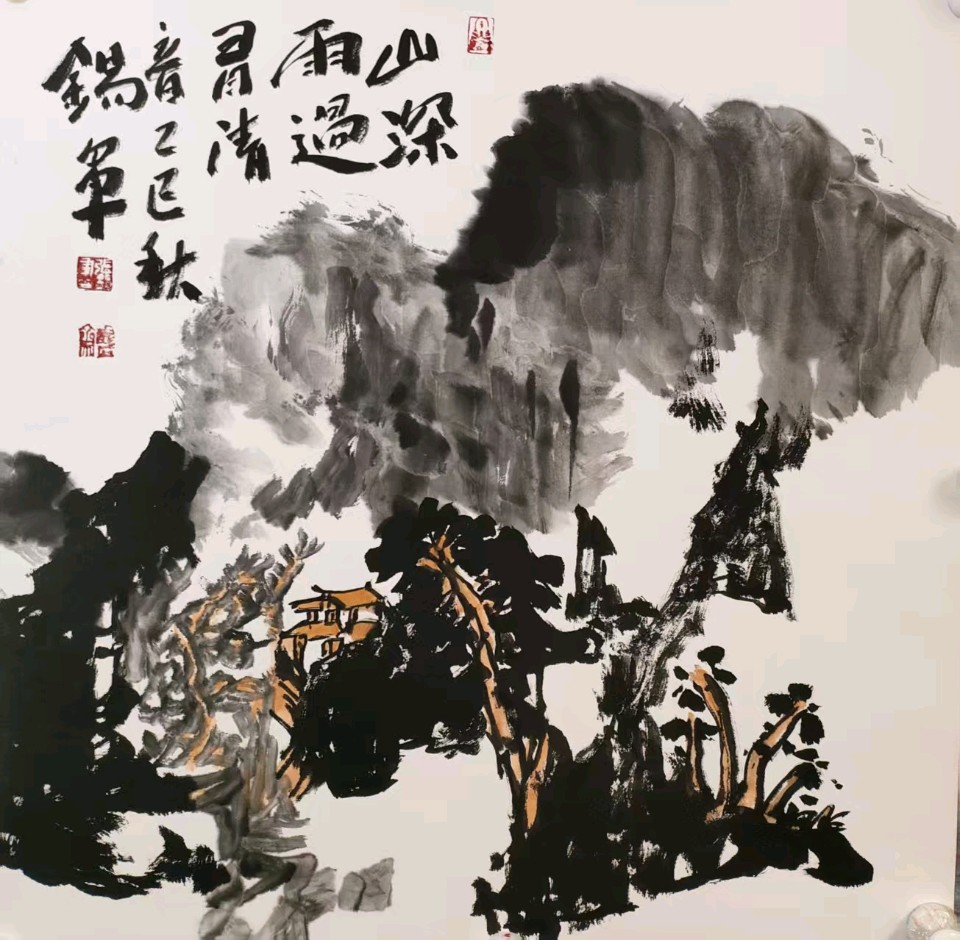 山深
雨過
清
音乙巳秋
錫軍